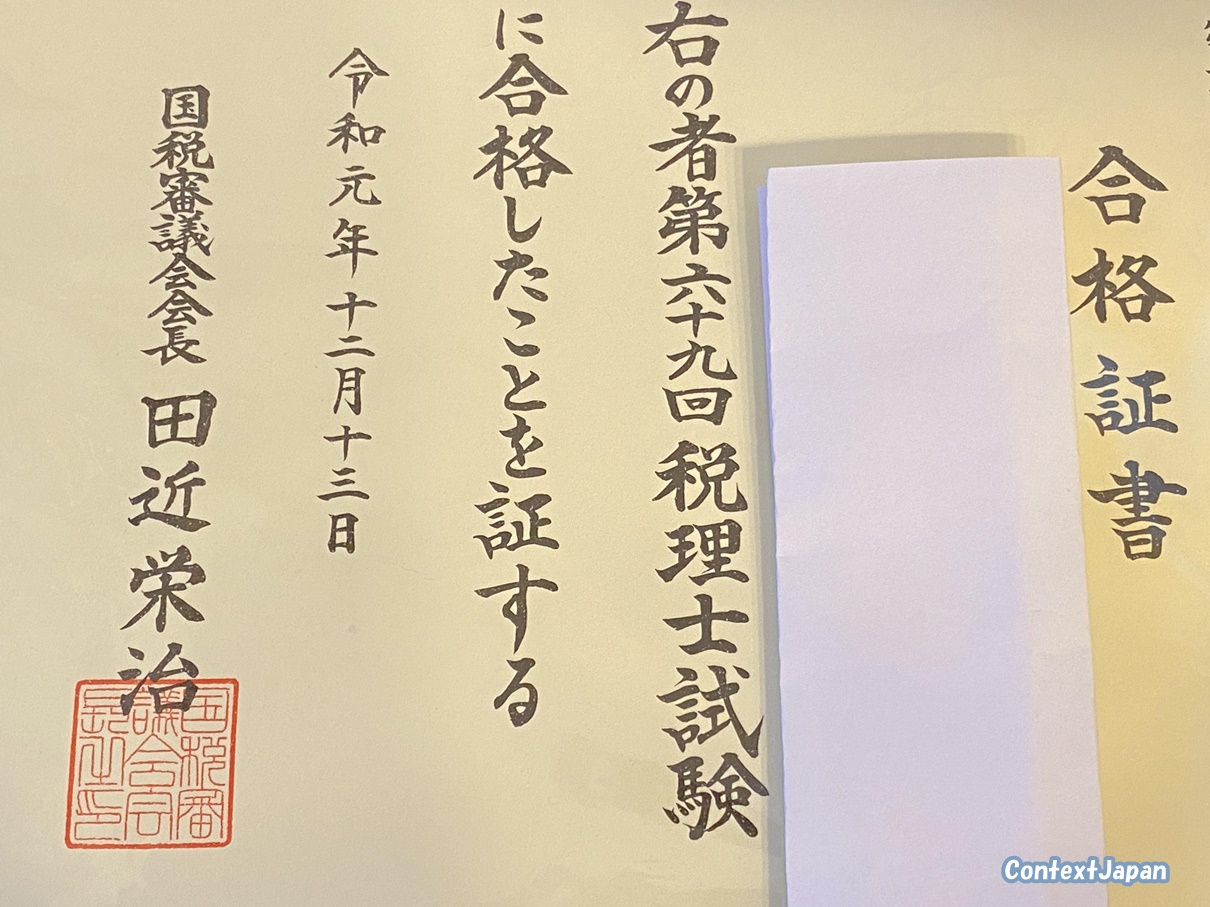 合格証書
右の者第六十九回税理士試験
に合格したことを証する
令和元年十二月十三日
国税審議会会長 田近栄治
国税審
議会会
長之印
ContextJapan